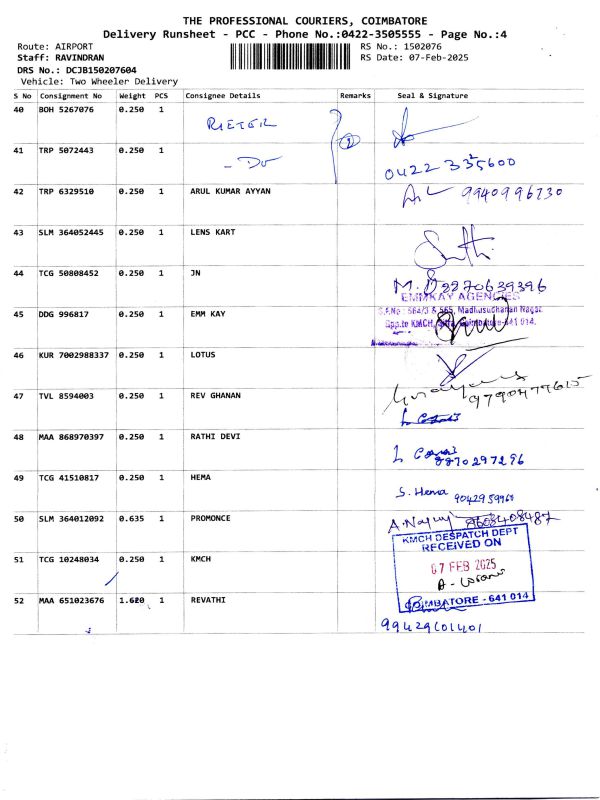 THE PROFESSIONAL COURIERS, COIMBATORE
Delivery Runsheet - PCC - Phone No.:0422-3505555 - Page No.:4
Route: AIRPORT RS No.: 1502076
Staff: RAVINDRAN RS Date: 07-Feb-2025
DRS No.: DCJB150207604
Vehicle: Two Wheeler Delivery
S No Consignment No Weight PCS Consignee Details Remarks Seal & Signature
40 BOH 5267076 0.250 1 RIETER 2
41 TRP 5072443 0.250 1 - Do 0422 3325600
42 TRP 6329510 0.250 1 ARUL KUMAR AYYAN 9940996730
43 SLM 364052445 0.250 1 LENS KART
44 TCG 50808452 0.250 1 JN
EMMKAY AGENCIES
45 DDG 996817 0.250 1 EMM KAY
S.F.No : 564/3 & 565, Madhusudhanan Nagar,
Opp.to KMCH, Coimbatore-641 014.
46 KUR 7002988337 0.250 1 LOTUS
47 TVL 8594003 0.250 1 REV GHANAN 9790477615
48 MAA 868970397 0.250 1 RATHI DEVI 8870297296
49 TCG 41510817 0.250 1 HEMA S. Hema
50 SLM 364012092 0.635 1 PROMONCE
KMCH DESPATCH DEPT
RECEIVED ON
51 TCG 10248034 0.250 1 KMCH 07 FEB 2025
52 MAA 651023676 1.620 1 REVATHI COIMBATORE - 641 014